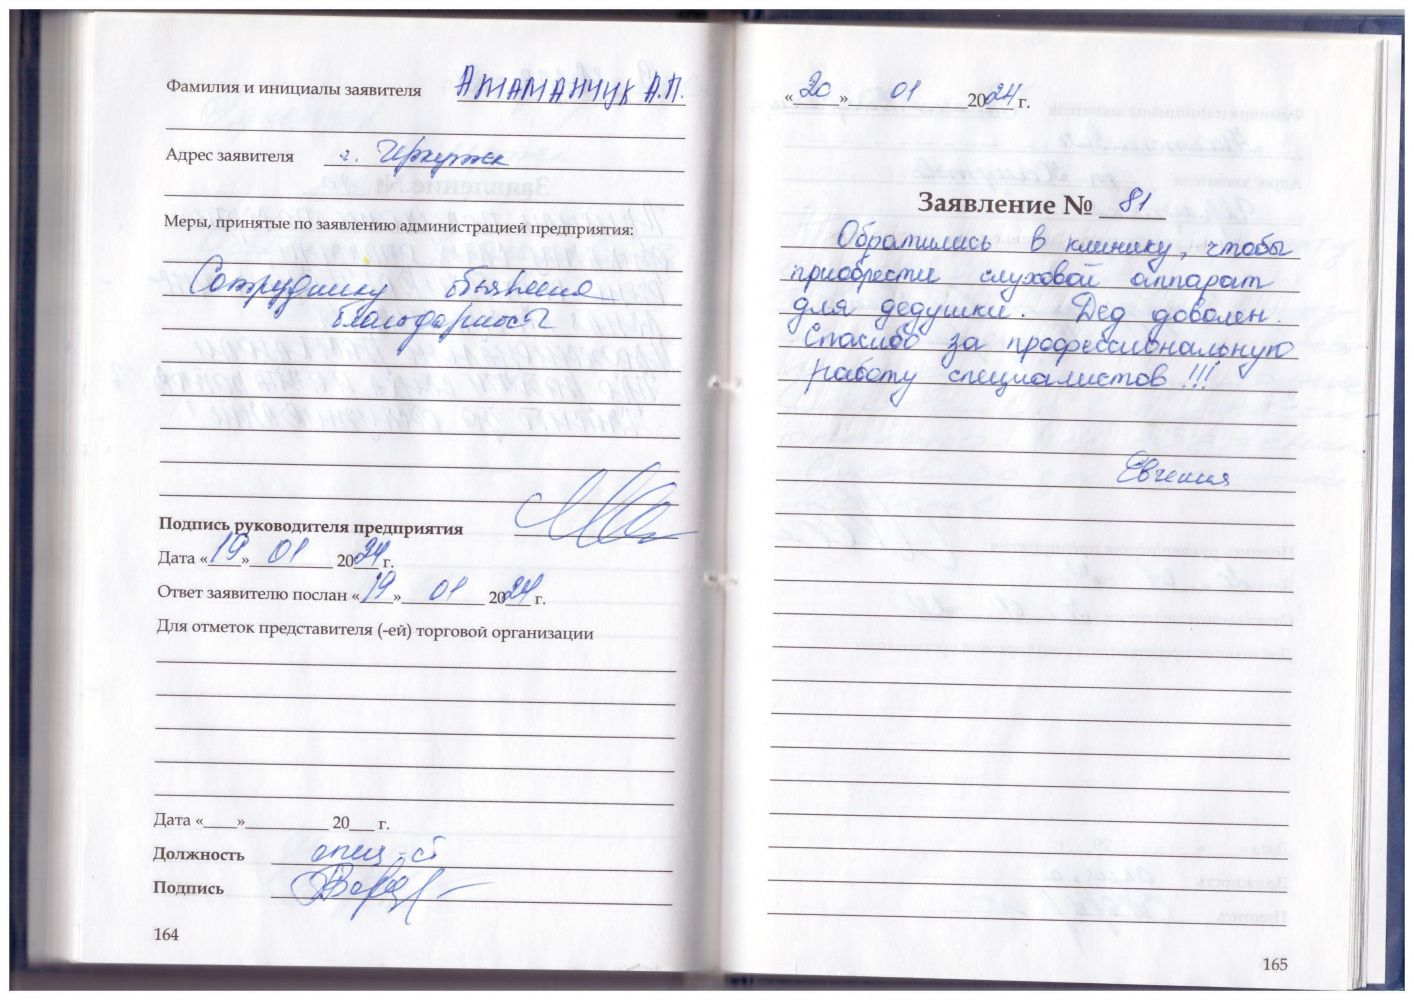 Фамилия и инициалы заявителя Атаманчук А.П.
Адрес заявителя г. Иркутск
Меры, принятые по заявлению администрацией предприятия:
Сотруднику объявлена
благодарность
Подпись руководителя предприятия
Дата «19» 01 2024 г.
Ответ заявителю послан «19» 01 2024 г.
Для отметок представителя (-ей) торговой организации
Дата «____»__________ 20___ г.
Должность спец-ст
Подпись
164
«20» 01 2024 г.
Заявление № 81
Обратились в клинику, чтобы
приобрести слуховой аппарат
для дедушки. Дед доволен.
Спасибо за профессиональную
работу специалистов!!!
Евгения
165